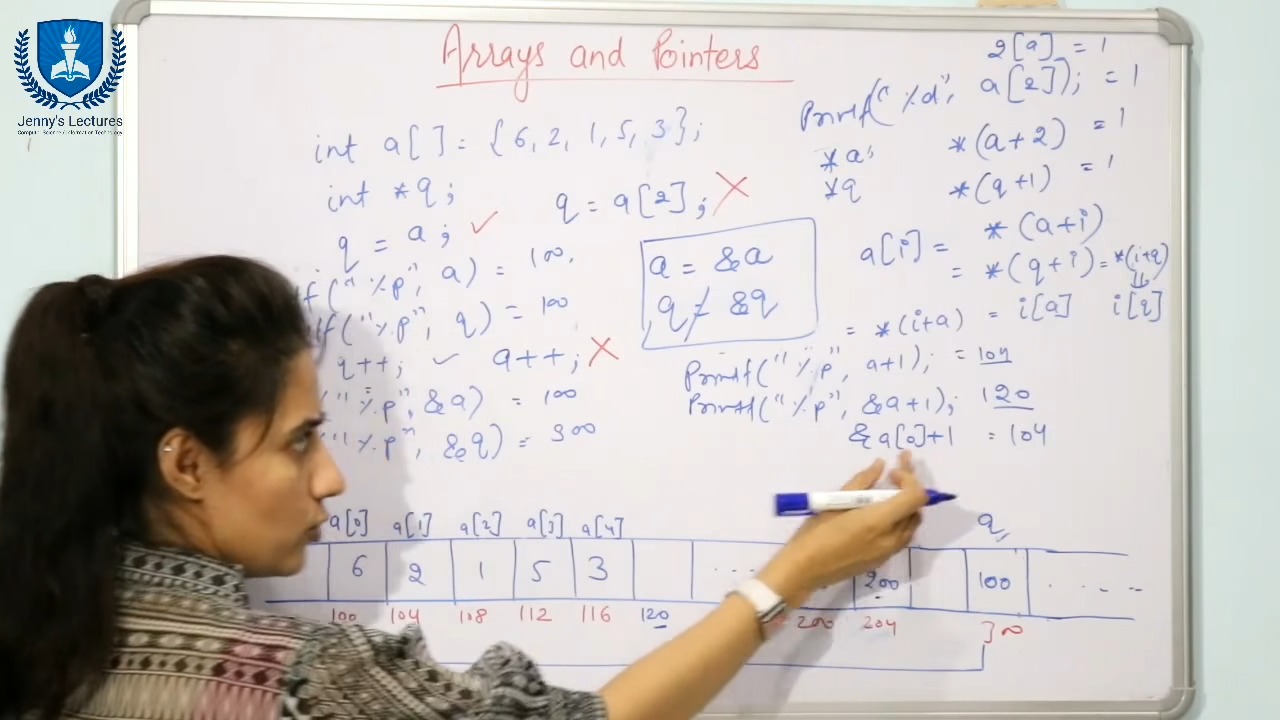 Jenny's Lectures
Computer Science/Information Technology
Arrays and Pointers
int a[] = {6, 2, 1, 5, 3};
int *q;
q = a[2];
q = a; ✓
f("%p", a) = 100.
if("%p", q) = 100
q++; ✓ a++;
"%p", &a) = 100
"%p", &q) = 300
a = &a
q ≠ &q
2[a] = 1
Printf("%d", a[2]); = 1
*a; *(a+2) = 1
*q *(q+1) = 1
a[i] = *(a+i)
= *(q+i) = *(i+q)
= *(i+a) = i[a] i[q]
Printf("%p", a+1); = 104
Printf("%p", &a+1); 120
&a[0]+1 = 104
q
a[0] a[1] a[2] a[3] a[4]
6 2 1 5 3 ... 200 100 ....
100 104 108 112 116 120 200 204 300